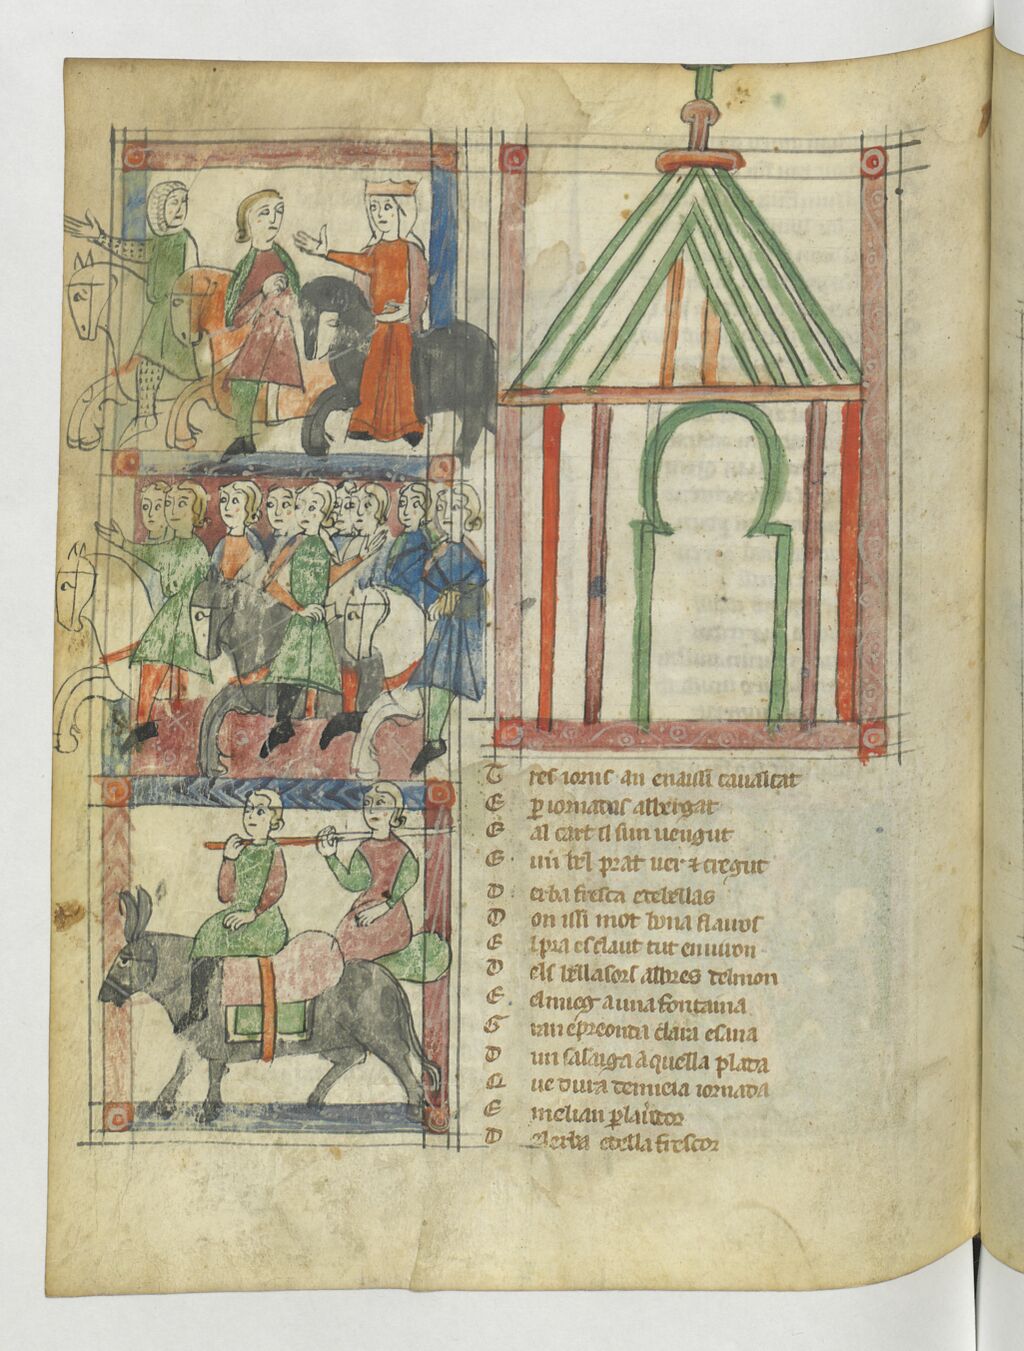 T res iorns an enaissi cavalcat
E p iornadas albergat
E al cart il sun vengut
E un bel prat vert & cregut
D erba fresca e de bellas
D on issi mot bona flavors
E l pra es claut tut environ
D els bellasors albres del mon
E el mieg a una fontaina
G ran e preonda clara e sana
D un s'asaiga aquella plada
Q ue dura de mieia iornada
E melian p la
D e l erba e de lla frescor